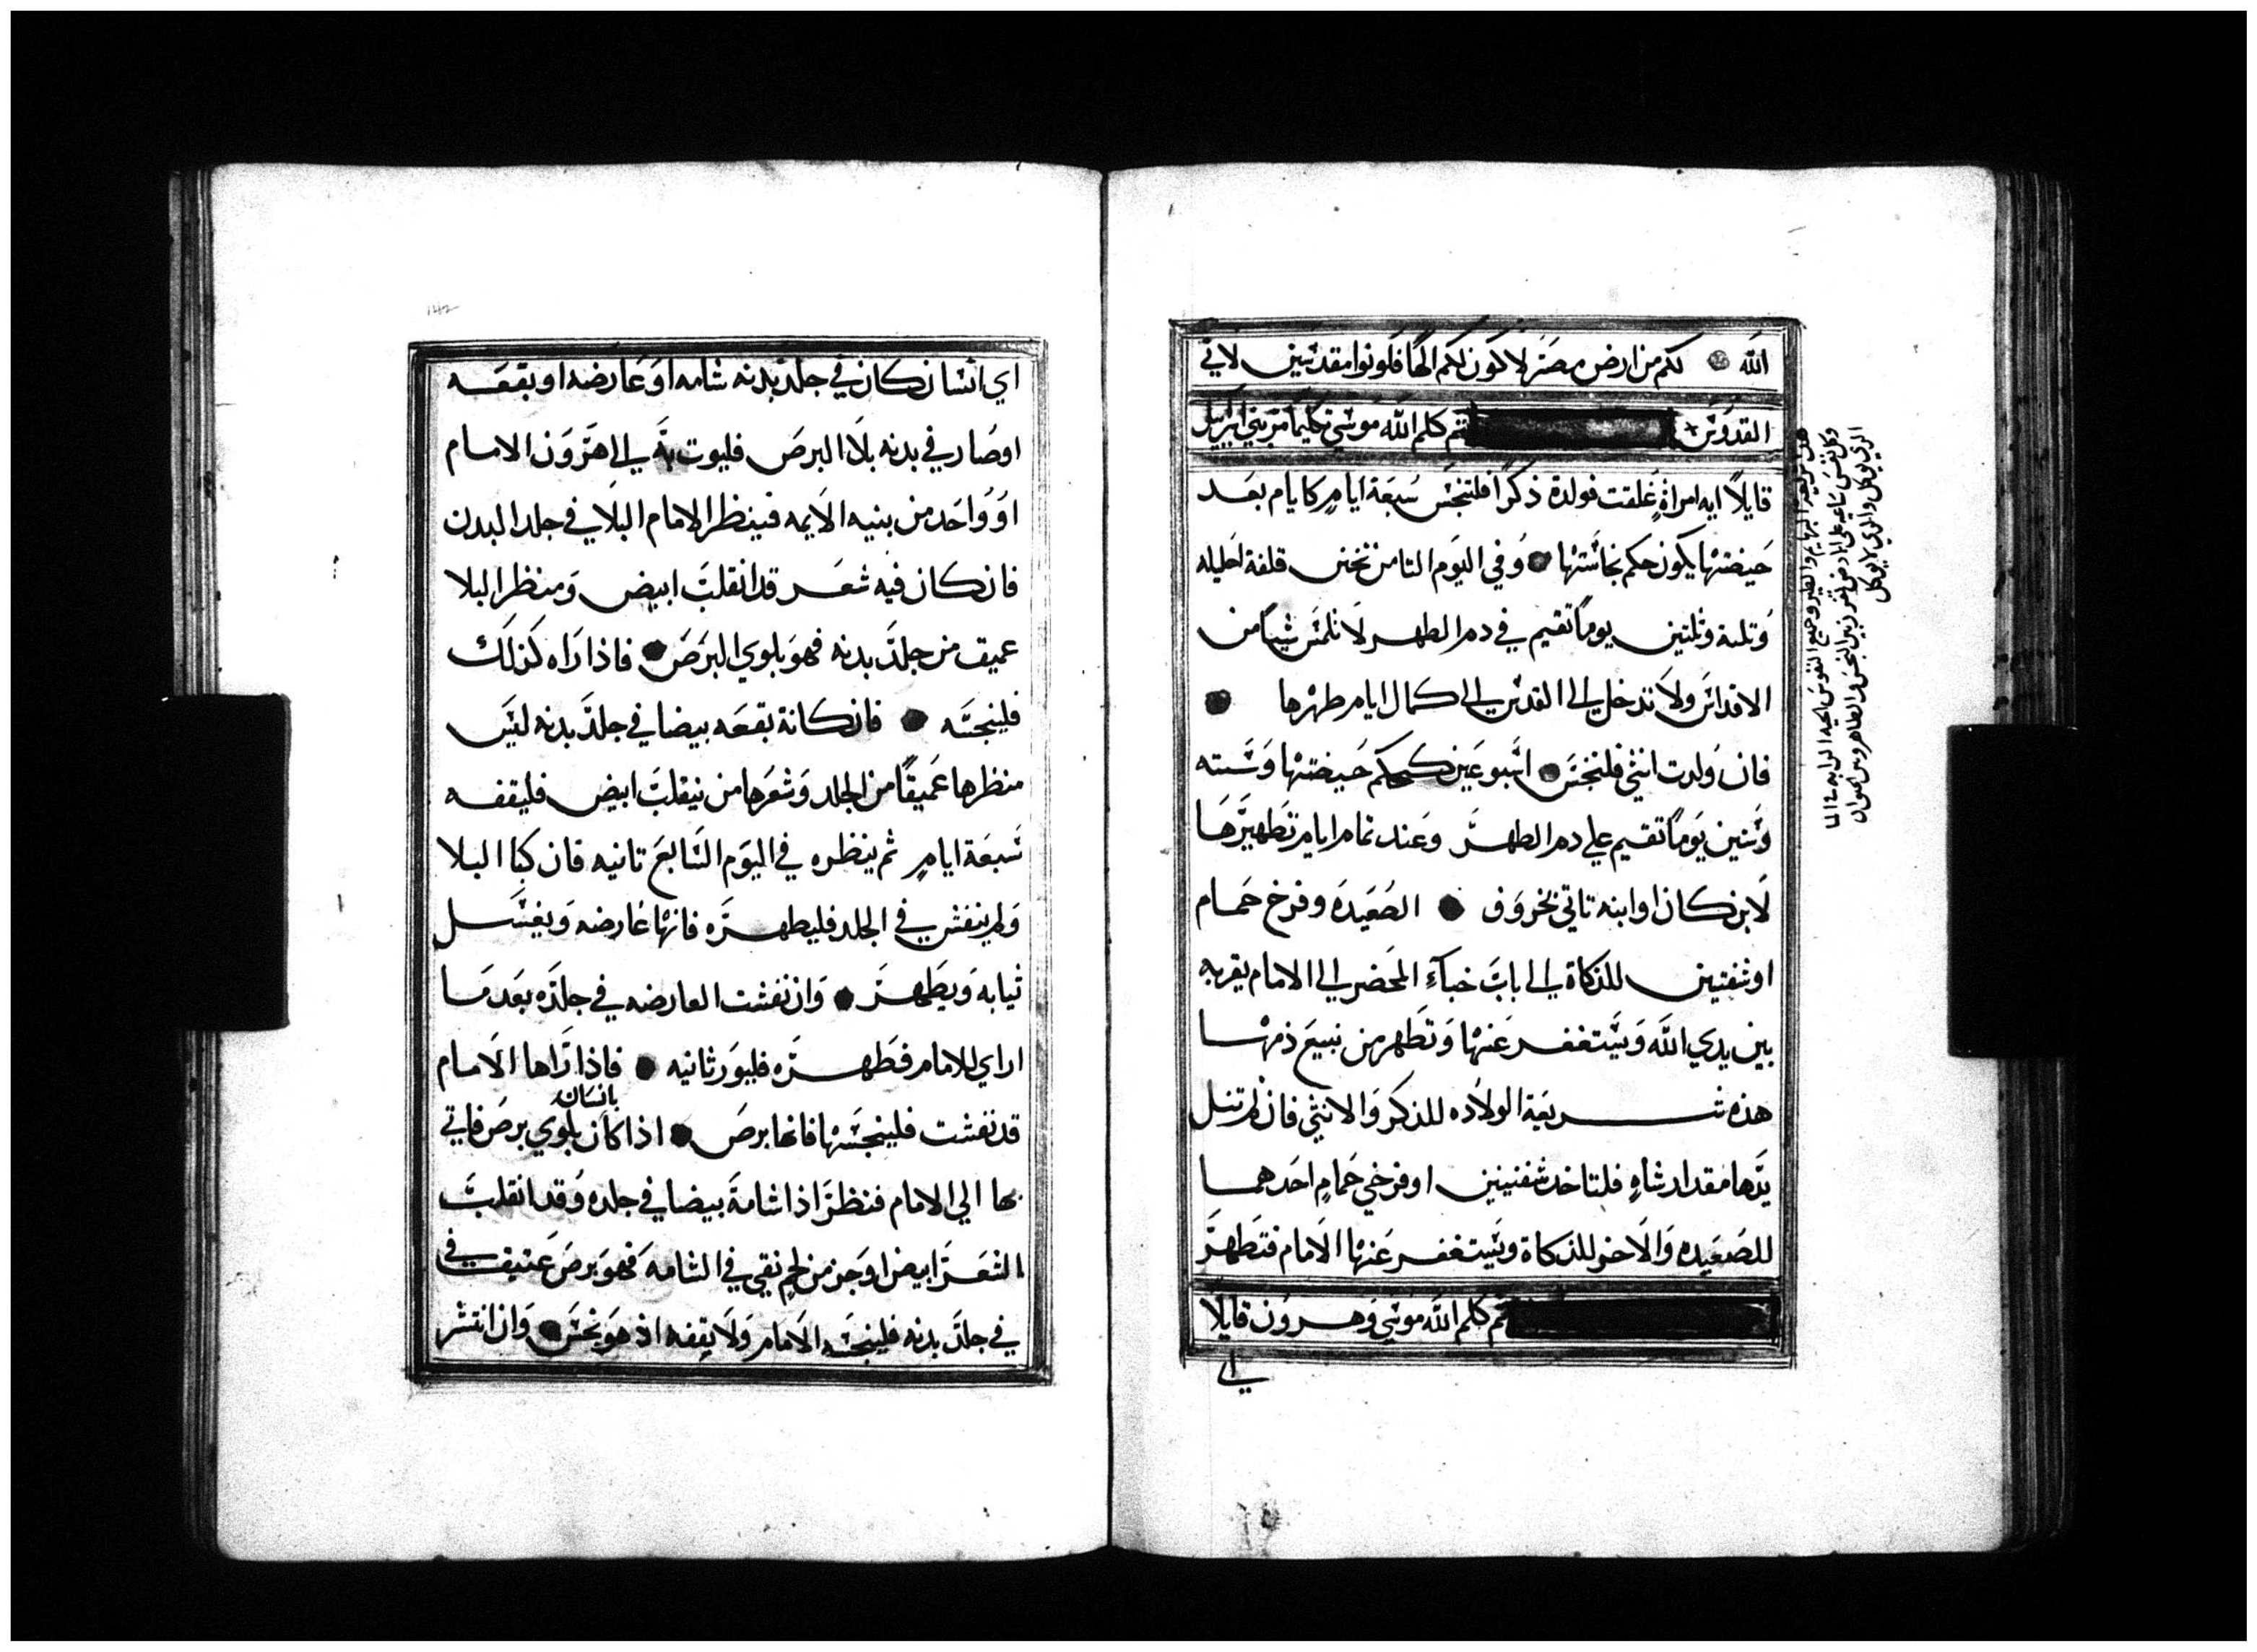 الله لكم من ارض مصر لاكون لكم الها فكونوا مقدسين لاني
القدوس ثم كلم الله موسي تكليما مر بني اسرايل
قايلا ايه امراة علقت فولدة ذكرا فلتنجس سبعة ايام كايام بعد
حيضتها يكون حكم نجاستها وفي اليوم الثامن تختن قلفة احليله
وتلتة وثلثين يوما تقيم في دم الطهر لا تلمس شيا من
الاقداس ولا تدخل الي القدس الي كمال ايام طهرها
فان ولدت انثي فلتنجس اسبوعين كحكم حيضتها وسته
وستين يوما تقيم علي دم الطهر وعند تمام ايام تطهيرها
لابن كان او ابنه تاتي بخروف الصعيده وفرخ حمام
او شفنين للذكاة الي باب خباء المحضر الي الامام يقربه
بين يدي الله ويستغفر عنها وتطهر من نبيع ذمها
هذه شريعة الولاده للذكر والانثي فان لم تنل
يدها مقدار شاه فلتاخد شفنينين او فرخي حمام احدهما
للصعيده والاخر للذكاة ويستغفر عنها الامام فتطهر
ثم كلم الله موسي وهرون قايلا
اي
البهايم والطير وجميع النفوس الحيه الدابه في الما
وكل نفس ساعيه علي الارض بين النجس والطاهر وبين الحيوان
الذي يوكل والذي لا يوكل
142
اي انسان كان في جلد بدنه شامه او عارضه او بقعه
او صار في بدنه بلا البرص فليوت به الي هرون الامام
او واحد من بنيه الايمه فينظر الامام البلا في جلد البدن
فان كان فيه شعر قد انقلب ابيض ومنظر البلا
عميق من جلد بدنه فهو بلوي البرص فاذا راه كذلك
فلينجسه فان كانة بقعه بيضا في جلد بدنه ليس
منظرها عميقا من الجلد وشعرها من ينقلب ابيض فليقفه
سبعة ايام ثم ينظره في اليوم السابع تانيه فان كبا البلا
ولم ينفش في الجلد فليطهره فانها عارضه ويغسل
ثيابه ويطهر وان نفشت العارضه في جلده بعد ما
اراي للامام فطهره فليور ثانيه فاذا راها الامام
قد نفشت فلينجسها فانها برص اذا كان بانسان بلوي برص فاتي
بها الي الامام فنظر اذا شامة بيضا في جلده وقد انقلب
الشعر ابيض او جز من لحم نقي في الشامه فهو برص عتيق في
في جلد بدنه فلينجسه الامام ولا يقفه اذ هو نجس وان انتشر